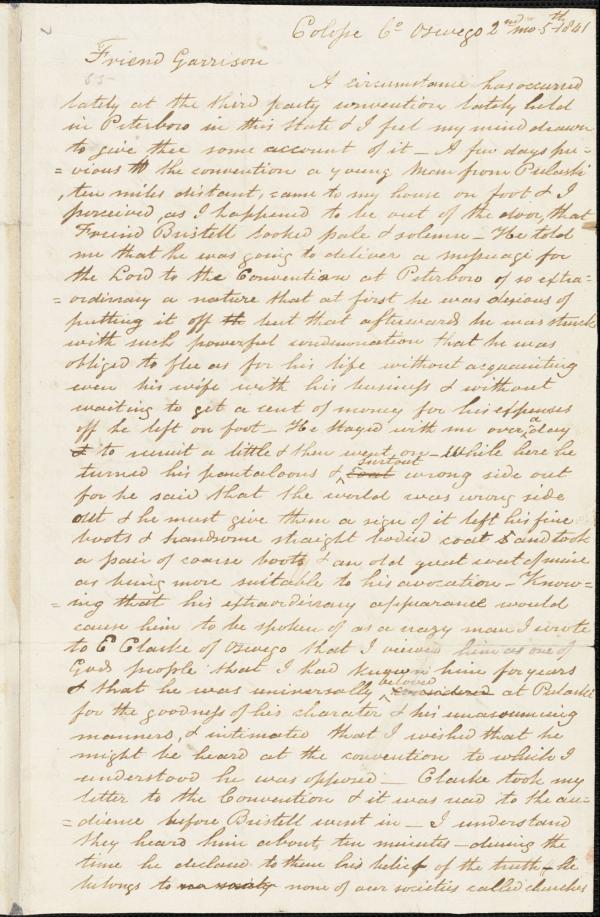 Colosse Co Oswego 2nd mo 5th 1841
Friend Garrison
A circumstance has occurred
lately at the third party convention lately held
in Peterboro in this State & I feel my mind drawn
to give thee some account of it — A few days pre-
=vious to the convention a young man from Pulaski
, ten miles distant, came to my house on foot & I
perceived, as I happened to be out of the door, that
Friend Bristell looked pale & solemn — He told
me that he was going to deliver a message for
the Lord to the Convention at Peterboro of so extra-
=ordinary a nature that at first he was desirous of
putting it off th but that afterwards he was struck
with such powerful condemnation that he was
obliged to flee as for his life without acquainting
even his wife with his business & without
waiting to get a cent of money for his expenses
off he left on foot — He stayed with me over a day
& to recruit a little & then went on — While here he
turned his pantaloons & surtout coat wrong side out
for he said that the world was wrong side
out & he must give them a sign of it left his fine
boots & handsome straight bodied coat & and took
a pair of coarse boots & an old great coat of mine
as being more suitable to his avocation — Know-
=ing that his extraordinary appearance would
cause him to be spoken of as a crazy man I wrote
to E Clarke of Oswego that I viewed him as one of
Gods people that I had known him for years
& that he was universally beloved considered at Pulaski
for the goodness of his charater & his unassuming
manners, & intimated that I wished that he
might be heard at the convention to which I
understood he was opposed — Clarke took my
letter to the Convention & it was read to the au-
=dience before Bristell went in — I understand
they heard him about ten minutes — during the
time he declared to them his belief of the truth — he
belongs to no society none of our societies called churches